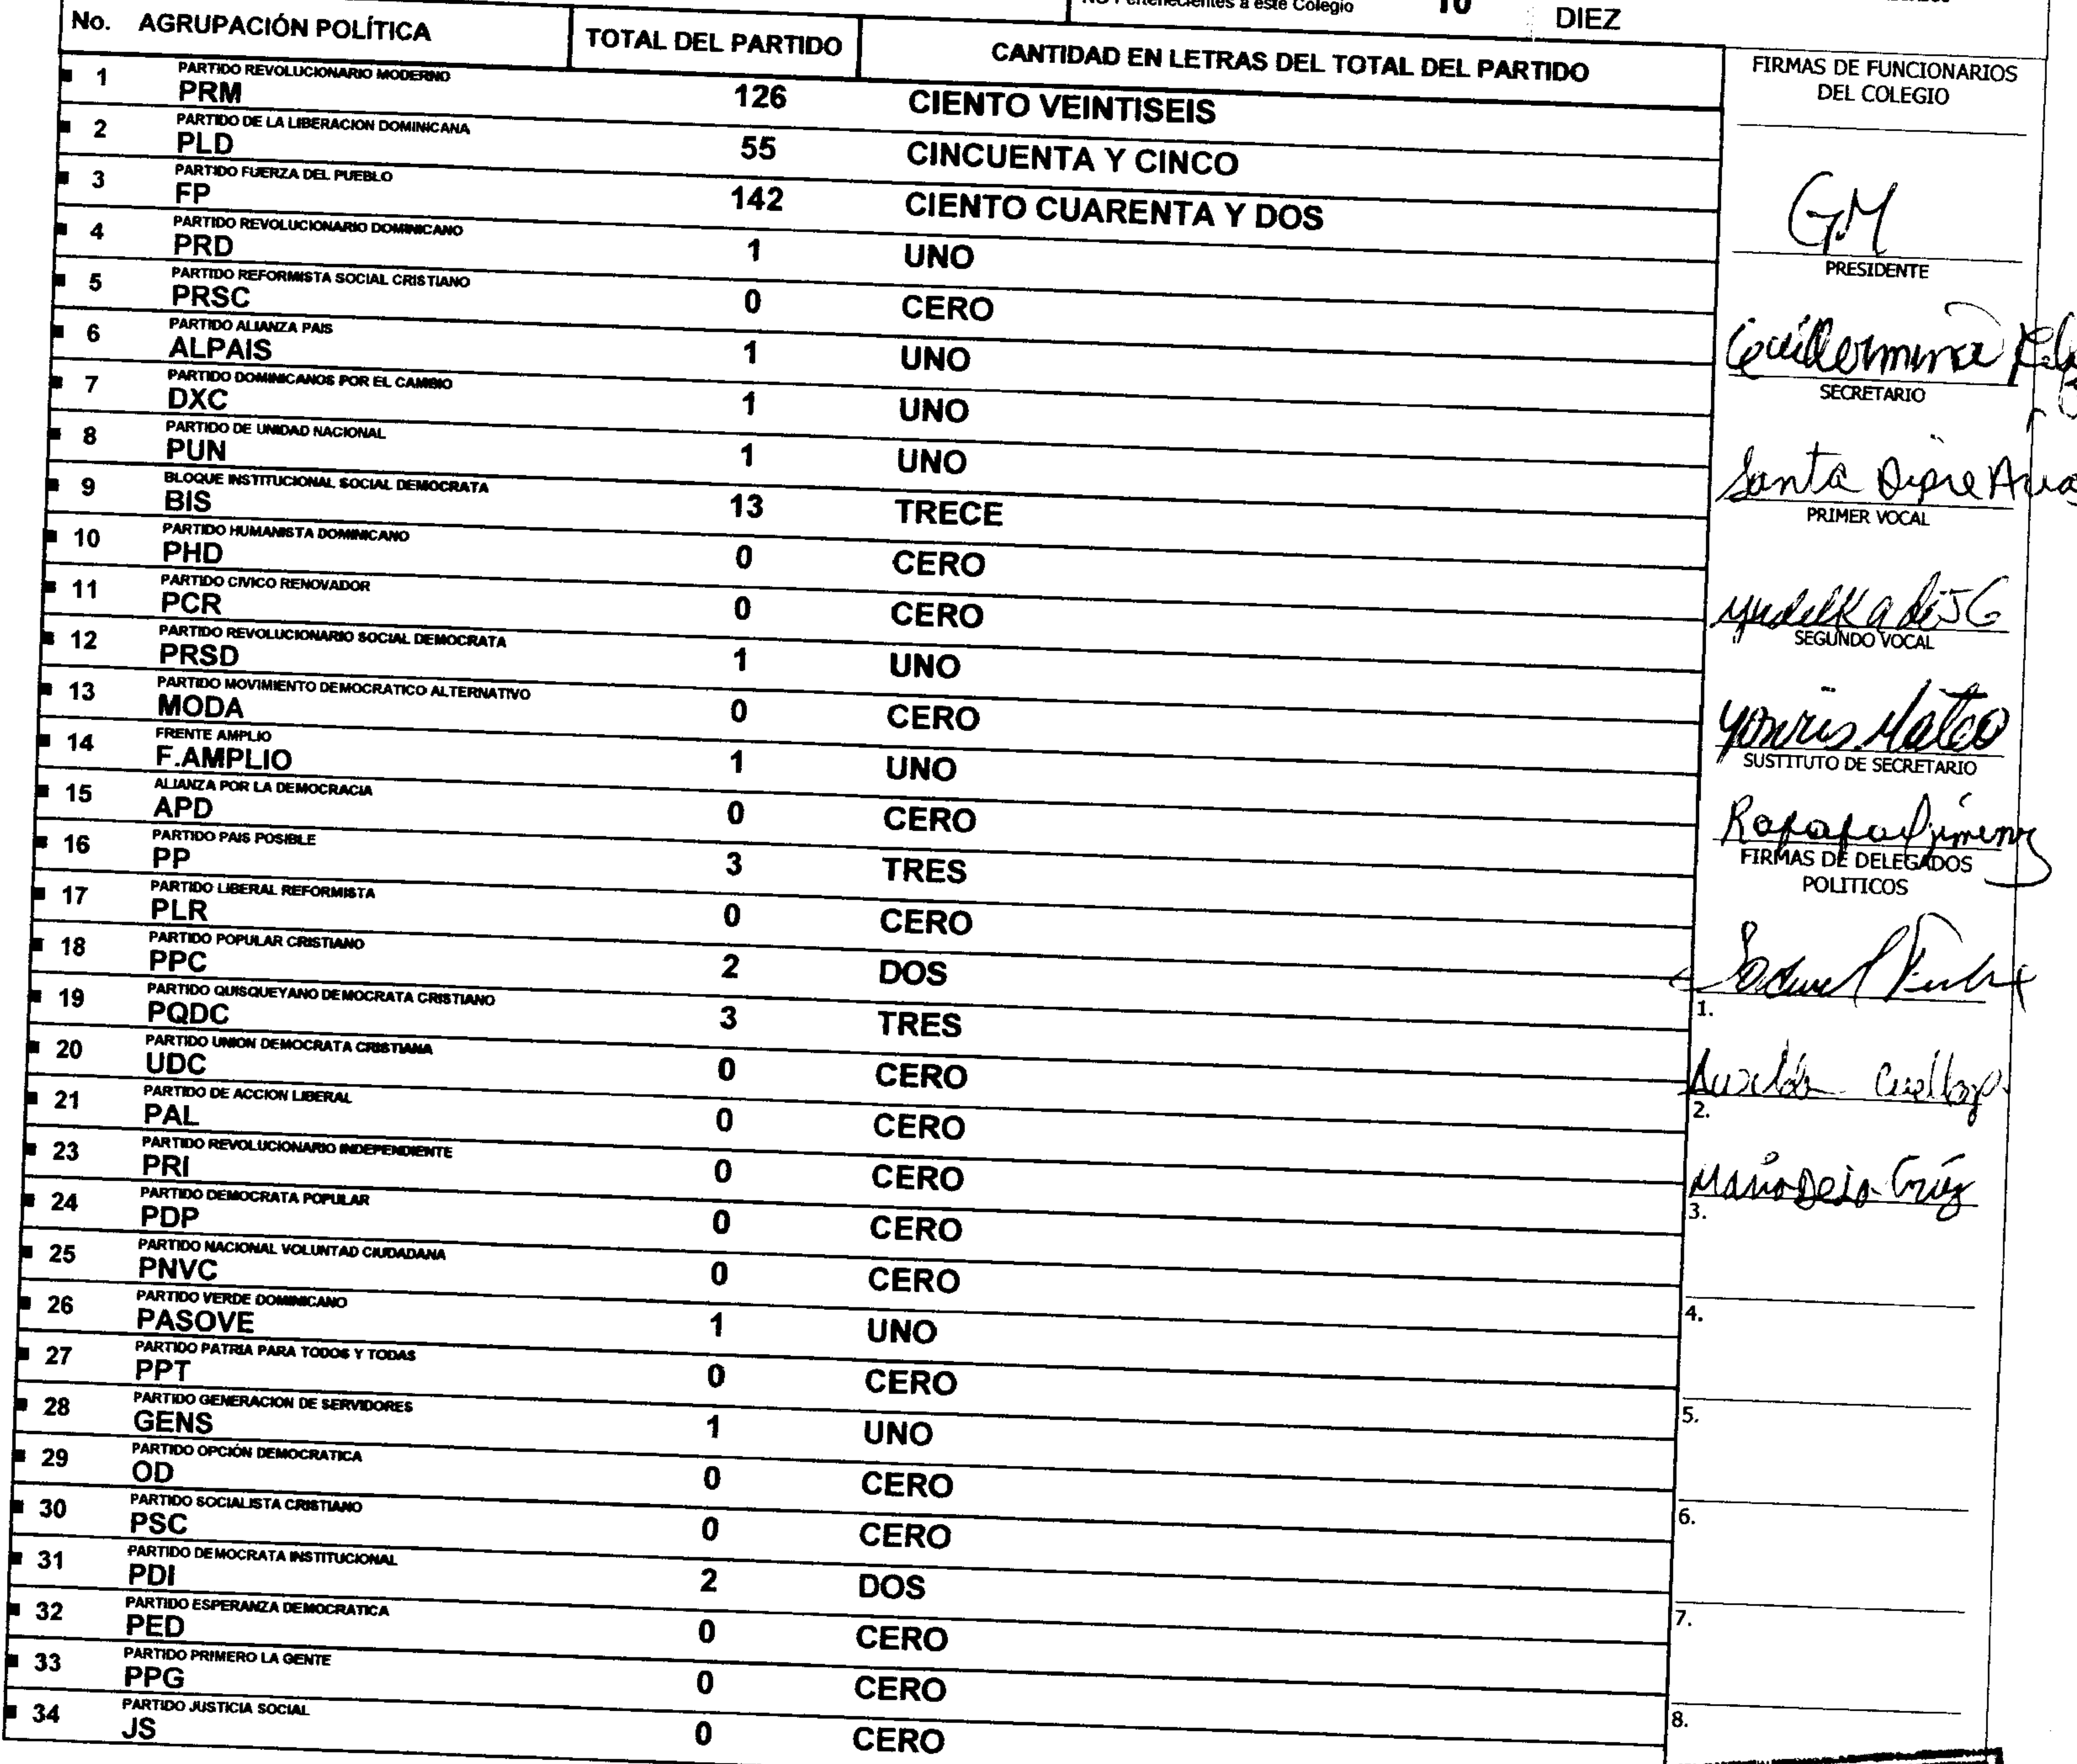 10
DIEZ
No. AGRUPACIÓN POLÍTICA TOTAL DEL PARTIDO CANTIDAD EN LETRAS DEL TOTAL DEL PARTIDO
1 PARTIDO REVOLUCIONARIO MODERNO
PRM 126 CIENTO VEINTISEIS
2 PARTIDO DE LA LIBERACION DOMINICANA
PLD 55 CINCUENTA Y CINCO
3 PARTIDO FUERZA DEL PUEBLO
FP 142 CIENTO CUARENTA Y DOS
4 PARTIDO REVOLUCIONARIO DOMINICANO
PRD 1 UNO
5 PARTIDO REFORMISTA SOCIAL CRISTIANO
PRSC 0 CERO
6 PARTIDO ALIANZA PAIS
ALPAIS 1 UNO
7 PARTIDO DOMINICANOS POR EL CAMBIO
DXC 1 UNO
8 PARTIDO DE UNIDAD NACIONAL
PUN 1 UNO
9 BLOQUE INSTITUCIONAL SOCIAL DEMOCRATA
BIS 13 TRECE
10 PARTIDO HUMANISTA DOMINICANO
PHD 0 CERO
11 PARTIDO CIVICO RENOVADOR
PCR 0 CERO
12 PARTIDO REVOLUCIONARIO SOCIAL DEMOCRATA
PRSD 1 UNO
13 PARTIDO MOVIMIENTO DEMOCRATICO ALTERNATIVO
MODA 0 CERO
14 FRENTE AMPLIO
F.AMPLIO 1 UNO
15 ALIANZA POR LA DEMOCRACIA
APD 0 CERO
16 PARTIDO PAIS POSIBLE
PP 3 TRES
17 PARTIDO LIBERAL REFORMISTA
PLR 0 CERO
18 PARTIDO POPULAR CRISTIANO
PPC 2 DOS
19 PARTIDO QUISQUEYANO DEMOCRATA CRISTIANO
PQDC 3 TRES
20 PARTIDO UNION DEMOCRATA CRISTIANA
UDC 0 CERO
21 PARTIDO DE ACCION LIBERAL
PAL 0 CERO
23 PARTIDO REVOLUCIONARIO INDEPENDIENTE
PRI 0 CERO
24 PARTIDO DEMOCRATA POPULAR
PDP 0 CERO
25 PARTIDO NACIONAL VOLUNTAD CIUDADANA
PNVC 0 CERO
26 PARTIDO VERDE DOMINICANO
PASOVE 1 UNO
27 PARTIDO PATRIA PARA TODOS Y TODAS
PPT 0 CERO
28 PARTIDO GENERACION DE SERVIDORES
GENS 1 UNO
29 PARTIDO OPCIÓN DEMOCRATICA
OD 0 CERO
30 PARTIDO SOCIALISTA CRISTIANO
PSC 0 CERO
31 PARTIDO DEMOCRATA INSTITUCIONAL
PDI 2 DOS
32 PARTIDO ESPERANZA DEMOCRATICA
PED 0 CERO
33 PARTIDO PRIMERO LA GENTE
PPG 0 CERO
34 PARTIDO JUSTICIA SOCIAL
JS 0 CERO
FIRMAS DE FUNCIONARIOS
DEL COLEGIO
GM
PRESIDENTE
Guillermina
SECRETARIO
Santa Dipre
PRIMER VOCAL
SEGUNDO VOCAL
Yonris Mateo
SUSTITUTO DE SECRETARIO
FIRMAS DE DELEGADOS
POLITICOS
1.
2.
3. De la Cruz
4.
5.
6.
7.
8.